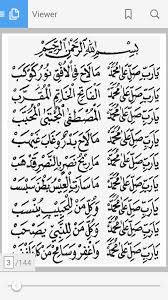 Viewer
بِسْمِ اللهِ الرَّحْمٰنِ الرَّحِيْمِ
يَارَبِّ صَلِّ عَلَى مُحَمَّدْ مَا لَاحَ فِى الْاُفْقِ نُوْرُ كَوْكَبْ
يَارَبِّ صَلِّ عَلَى مُحَمَّدْ الْفَاتِحِ الْخَاتِمِ الْمُقَرَّبْ
يَارَبِّ صَلِّ عَلَى مُحَمَّدْ الْمُصْطَفَى الْمُجْتَبَى الْمُحَبَّبْ
يَارَبِّ صَلِّ عَلَى مُحَمَّدْ مَا لَاحَ بَدْرٌ وَغَابَ غَيْهَبْ
يَارَبِّ صَلِّ عَلَى مُحَمَّدْ مَا رِيْحُ نَصْرٍ بِالنَّصْرِ قَدْ هَبْ
يَارَبِّ صَلِّ عَلَى مُحَمَّدْ مَا سَارَتِ الْعِيْسُ بَطْنَ سَبْسَبْ
يَارَبِّ صَلِّ عَلَى مُحَمَّدْ وَكُلِّ مَنْ لِلْحَبِيْبِ يُنْسَبْ
يَارَبِّ صَلِّ عَلَى مُحَمَّدْ وَكُلِّ مَنْ لِلنَّبِيِّ يَصْحَبْ
يَارَبِّ صَلِّ عَلَى مُحَمَّدْ وَاغْفِرْ وَسَامِحْ مَنْ كَانَ
3 /144